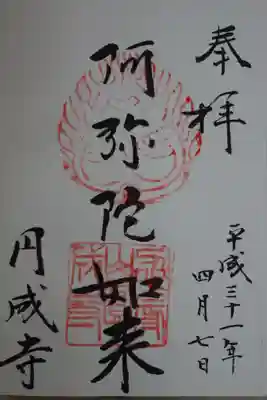 奉拝
平成三十一年
四月七日
阿弥陀如来
円成寺